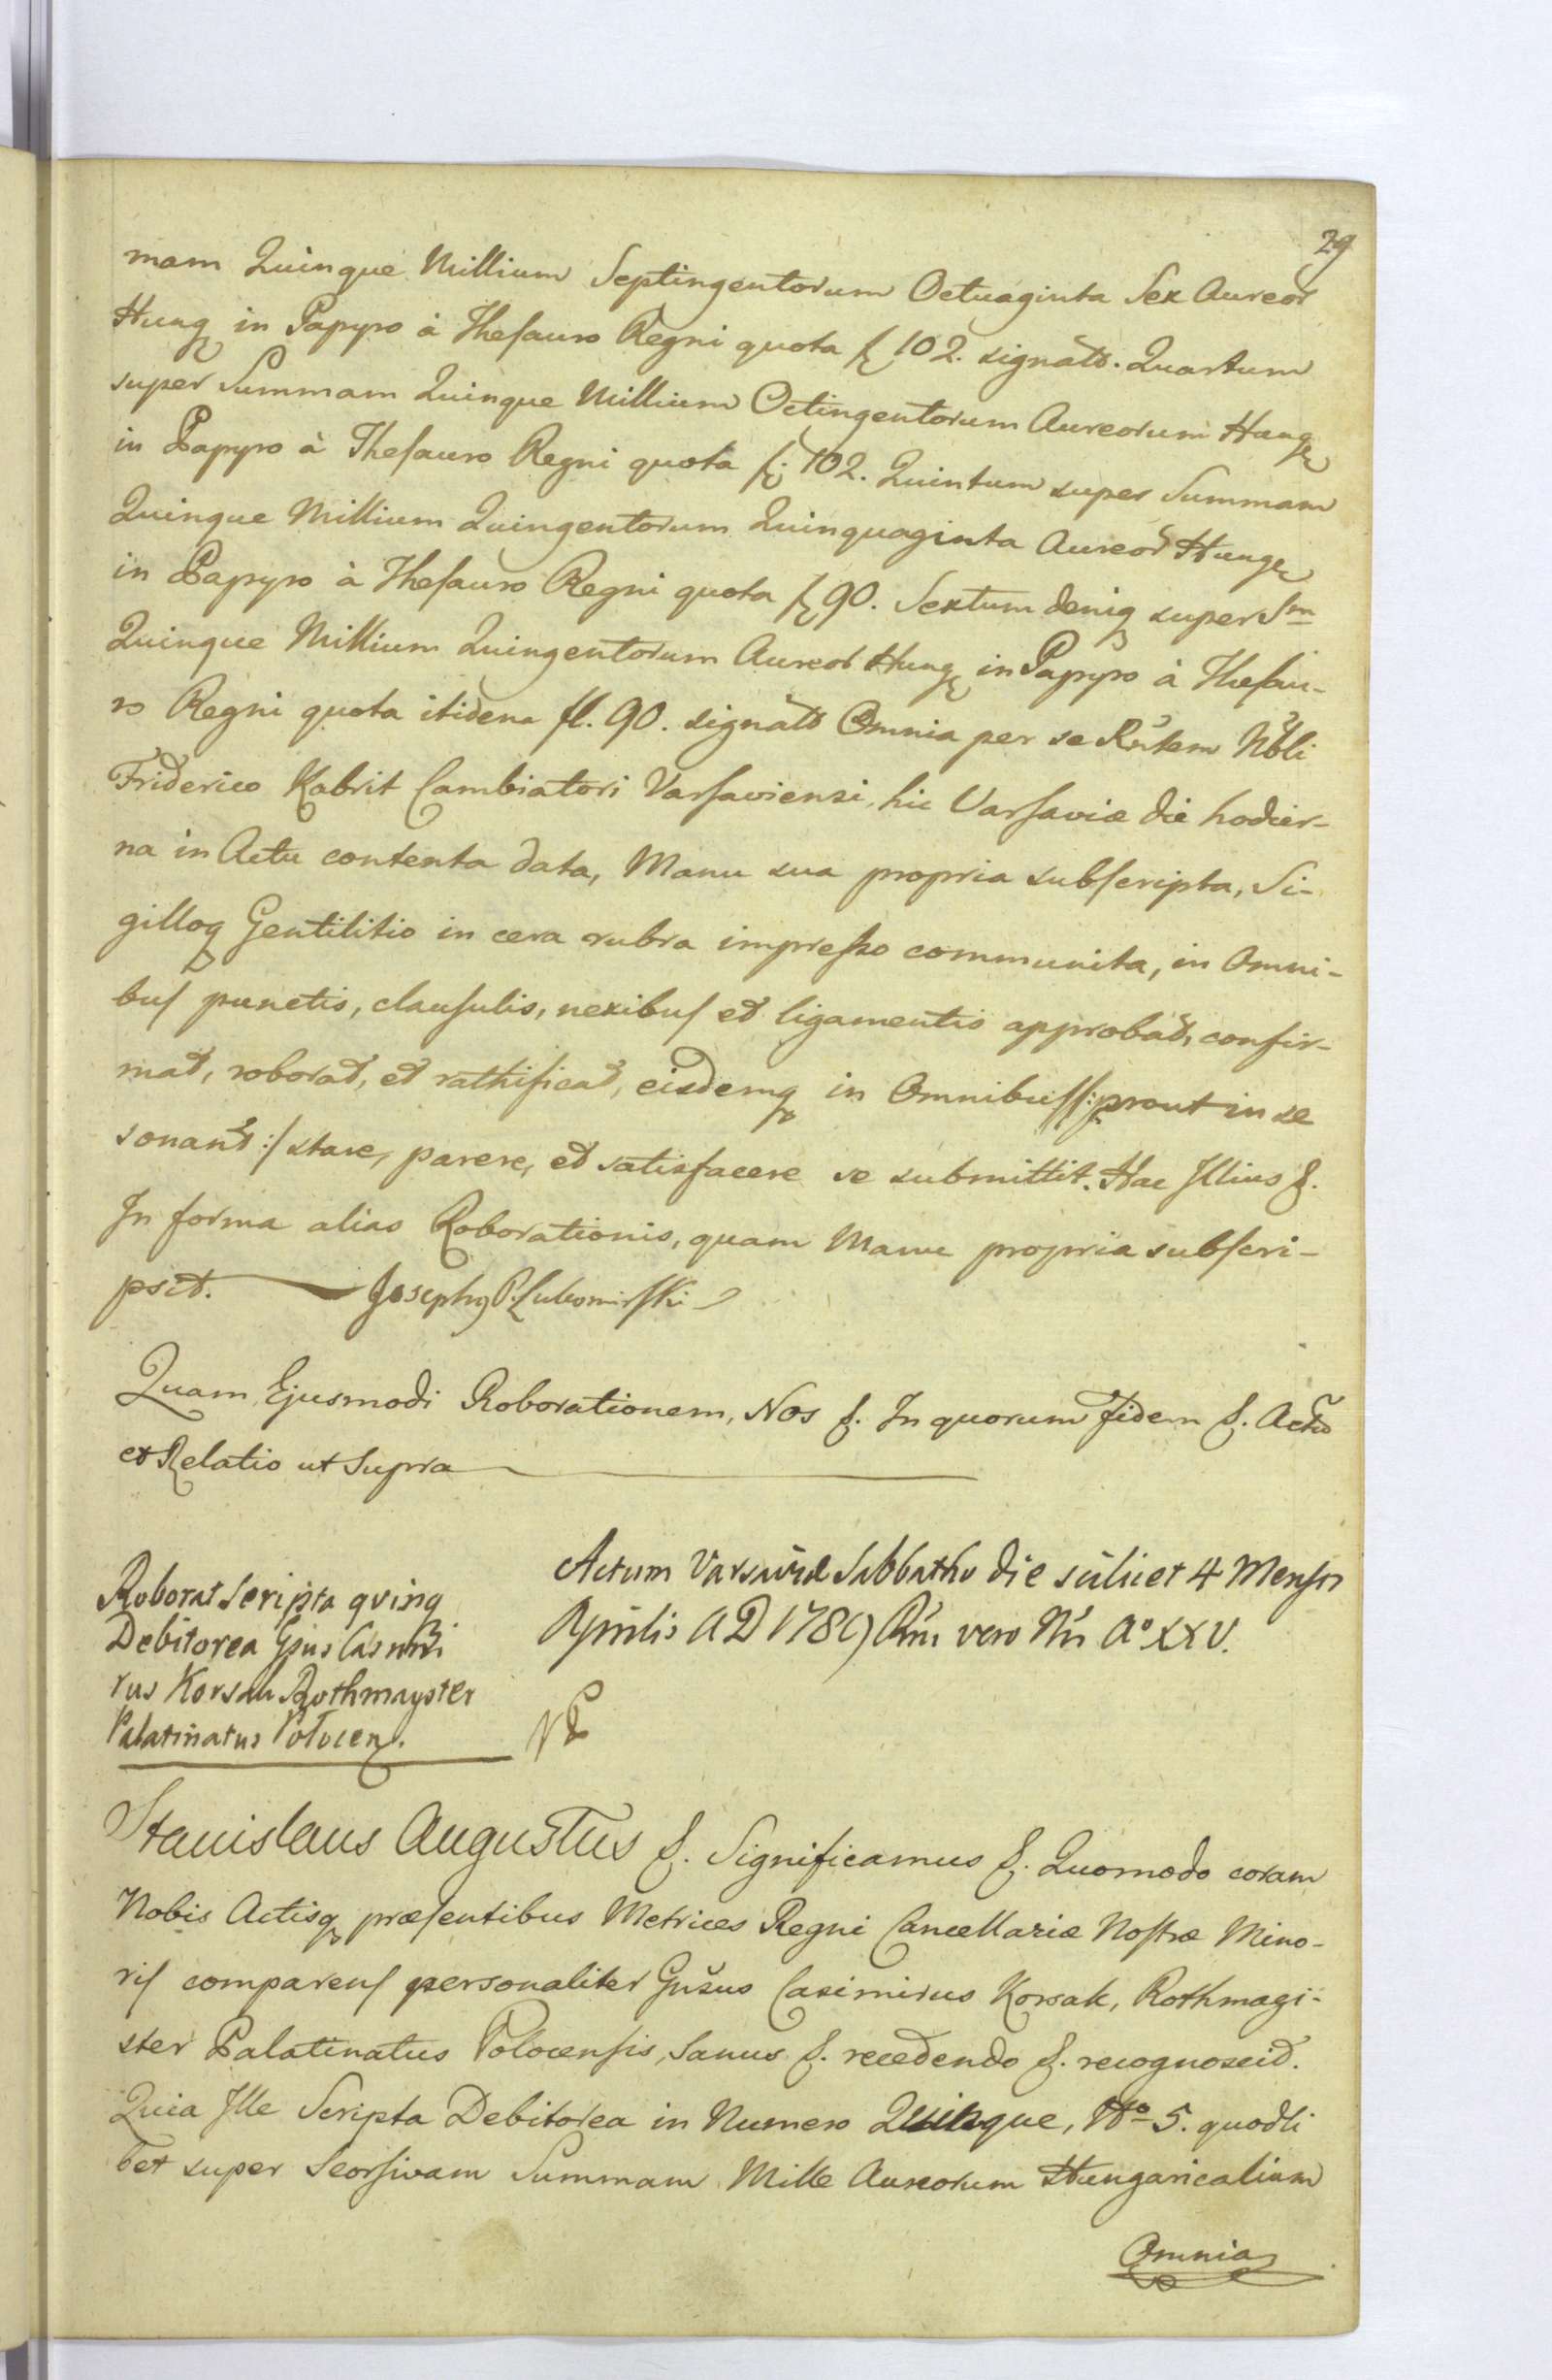 29
mam Quinque Millium Septingentorum Octuaginta Sex Aureor
Hung in Papyro à Thesauro Regni quota fl 102. signato. Quartum
super Summam Quinque Millium Octingentorum Aureorum Hung
in Papyro à Thesauro Regni quota fl. 102. Quintum super Summam
Quinque Millium Quingentorum Quinquaginta Aureor Hung
in Papyro à Thesauro Regni quota fl 90. Sextum deniq super Sm
Quinque Millium Quingentorum Aureor Hung in Papyro à Thesau-
ro Regni quota itidem fl. 90. signato Omnia per se Rntem Nbli
Friderico Kabrit Cambiatori Varsaviensi, hic Varsaviæ die hodier-
na in Actu contenta data, Manu sua propria subscripta, Si-
gilloq Gentilitio in cera rubra impresso communita, in Omni-
bus punctis, clausulis, nexibus et ligamentis approbat, confir-
mat, roborat, et rathificat, eisdemq in Omnibus /: prout in se
sonant :/ stare, parere, et satisfacere se submittit. Hac Illius &.
In forma alias Roborationis, quam Manu propria subscri-
psit. Josephq P. Lubomirski
Quam Ejusmodi Roborationem, Nos &. In quorum Fidem &. Actu
et Relatio ut Supra
Roborat Scripta qvinq
Debitorea Gsus Casimi
rus Korsak Rothmayster
Palatinatus Polocen.
Actum Varsaviæ Sabbatho die scilicet 4 Mensis
Aprilis A D 1789 Rni vero Nri Aº XXV.
Stanislaus Augustus &. Significamus &. Quomodo coram
Nobis Actisq præsentibus Metrices Regni Cancellariæ Nostræ Mino-
ris comparens personaliter Gnsus Casimirus Korsak, Rothmagi-
ster Palatinatus Polocensis, Sanus &. recedendo &. recognoscit.
Quia Ille Scripta Debitorea in Numero Quinque, Nº 5. quodli
bet super Seorsivam Summam Mille Aureorum Hungaricalium
Omnia